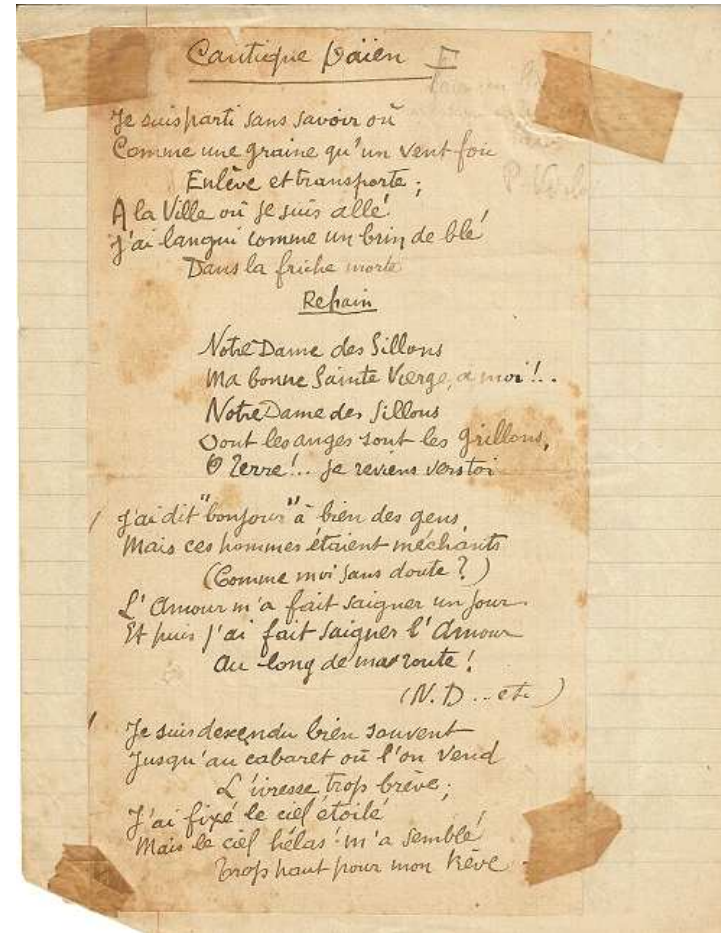 Cantique païen
Je suis parti sans savoir où
Comme une graine qu'un vent fou
Enlève et transporte ;
A la Ville où je suis allé
J'ai langui comme un brin de blé
Dans la friche morte
Refrain
Notre Dame des Sillons
Ma bonne Sainte Vierge, à moi !..
Notre Dame des Sillons
Dont les anges sont les Grillons,
O Terre !.. Je reviens vers toi
J'ai dit "bonjour" à bien des gens
Mais ces hommes étaient méchants
(Comme moi sans doute ?)
L'Amour m'a fait saigner un jour
Et puis j'ai fait saigner l'Amour
Au long de ma route !
(N. D... etc)
Je suis descendu bien souvent
Jusqu'au cabaret où l'on vend
L'ivresse trop brève ;
J'ai fixé le ciel étoilé
Mais le ciel hélas ! m'a semblé
Trop haut pour mon Rêve